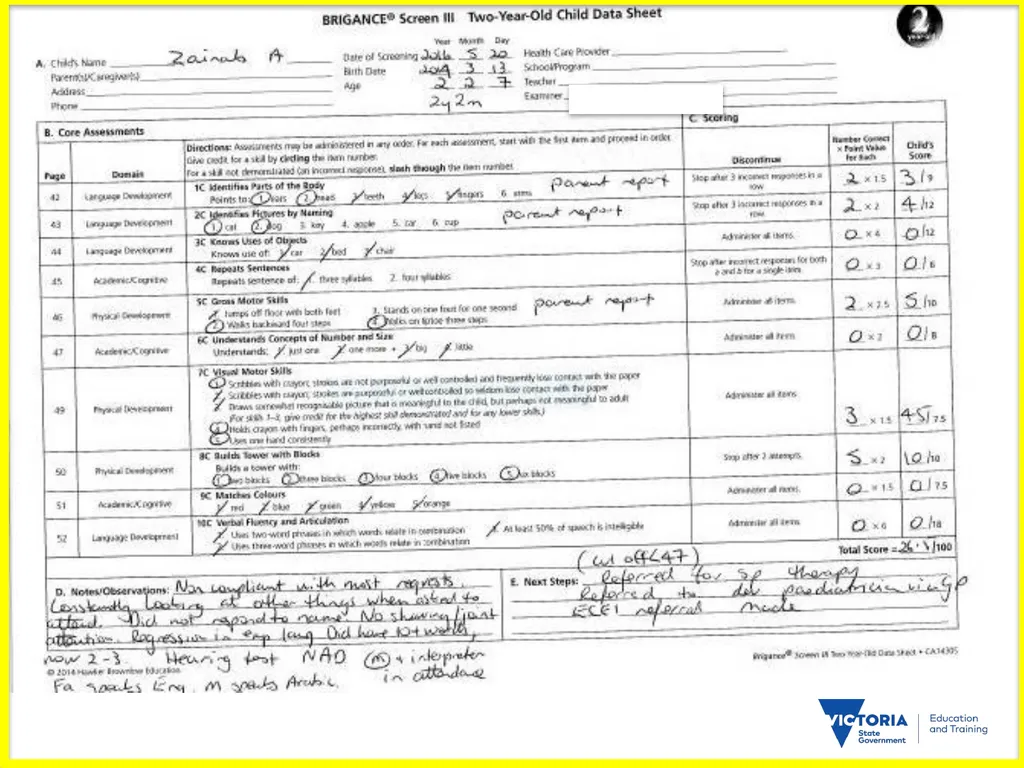 BRIGANCE® Screen III Two-Year-Old Child Data Sheet
2
year-old
Year Month Day
A. Child's Name Zainab A
Date of Screening 2016 5 20
Health Care Provider
Parent(s)/Caregiver(s)
Birth Date 2014 3 13
School/Program
Address
Age 2 2 7
Teacher
Phone
2y 2m
Examiner
B. Core Assessments
C. Scoring
Page
Domain
Directions: Assessments may be administered in any order. For each assessment, start with the first item and proceed in order.
Give credit for a skill by circling the item number.
For a skill not demonstrated (an incorrect response), slash through the item number.
Discontinue
Number Correct × Point Value for Each
Child's Score
42 Language Development
1C Identifies Parts of the Body parent report
Points to: 1. ears 2. head 3. teeth 4. legs 5. fingers 6. arms
Stop after 3 incorrect responses in a row.
2 × 1.5 3/9
43 Language Development
2C Identifies Pictures by Naming parent report
1. cat 2. dog 3. key 4. apple 5. car 6. cup
Stop after 3 incorrect responses in a row.
2 × 2 4/12
44 Language Development
3C Knows Uses of Objects
Knows use of: 1. car 2. bed 3. chair
Administer all items.
0 × 4 0/12
45 Academic/Cognitive
4C Repeats Sentences
Repeats sentence of: 1. three syllables 2. four syllables
Stop after incorrect responses for both a and b for a single item.
0 × 3 0/6
46 Physical Development
5C Gross Motor Skills parent report
1. Jumps off floor with both feet 3. Stands on one foot for one second
2. Walks backward four steps 4. Walks on tiptoe three steps
Administer all items.
2 × 2.5 5/10
47 Academic/Cognitive
6C Understands Concepts of Number and Size
Understands: 1. just one 2. one more • 3. big 4. little
Administer all items.
0 × 2 0/8
49 Physical Development
7C Visual Motor Skills
1. Scribbles with crayon; strokes are not purposeful or well controlled and frequently lose contact with the paper
2. Scribbles with crayon; strokes are purposeful or well controlled so seldom lose contact with the paper
3. Draws somewhat recognisable picture that is meaningful to the child, but perhaps not meaningful to adult
(For skills 1–3, give credit for the highest skill demonstrated and for any lower skills.)
4. Holds crayon with fingers, perhaps incorrectly, with hand not fisted
5. Uses one hand consistently
Administer all items
3 × 1.5 4.5/7.5
50 Physical Development
8C Builds Tower with Blocks
Builds a tower with:
1. two blocks 2. three blocks 3. four blocks 4. five blocks 5. six blocks
Stop after 2 attempts.
5 × 2 10/10
51 Academic/Cognitive
9C Matches Colours
1. red 2. blue 3. green 4. yellow 5. orange
Administer all items.
0 × 1.5 0/7.5
52 Language Development
10C Verbal Fluency and Articulation
1. Uses two-word phrases in which words relate in combination 3. At least 50% of speech is intelligible
2. Uses three-word phrases in which words relate in combination
Administer all items
0 × 6 0/18
Total Score = /100
(cut off <47)
D. Notes/Observations: Non compliant with most requests.
Constantly looking at other things when asked to
attend. Did not respond to name. No showing/joint
attention. Regression in exp lang. Did have 10+ words,
now 2-3. Hearing test NAD (m) + interpreter
in attendance
Fa speaks Eng, M speaks Arabic.
E. Next Steps: Referred for sp therapy
Referred to dev paediatrician via GP
ECEI referral made
© 2014 Hawker Brownlow Education
Brigance® Screen III Two-Year-Old Data Sheet • CA14305
VICTORIA
State
Government
Education
and Training